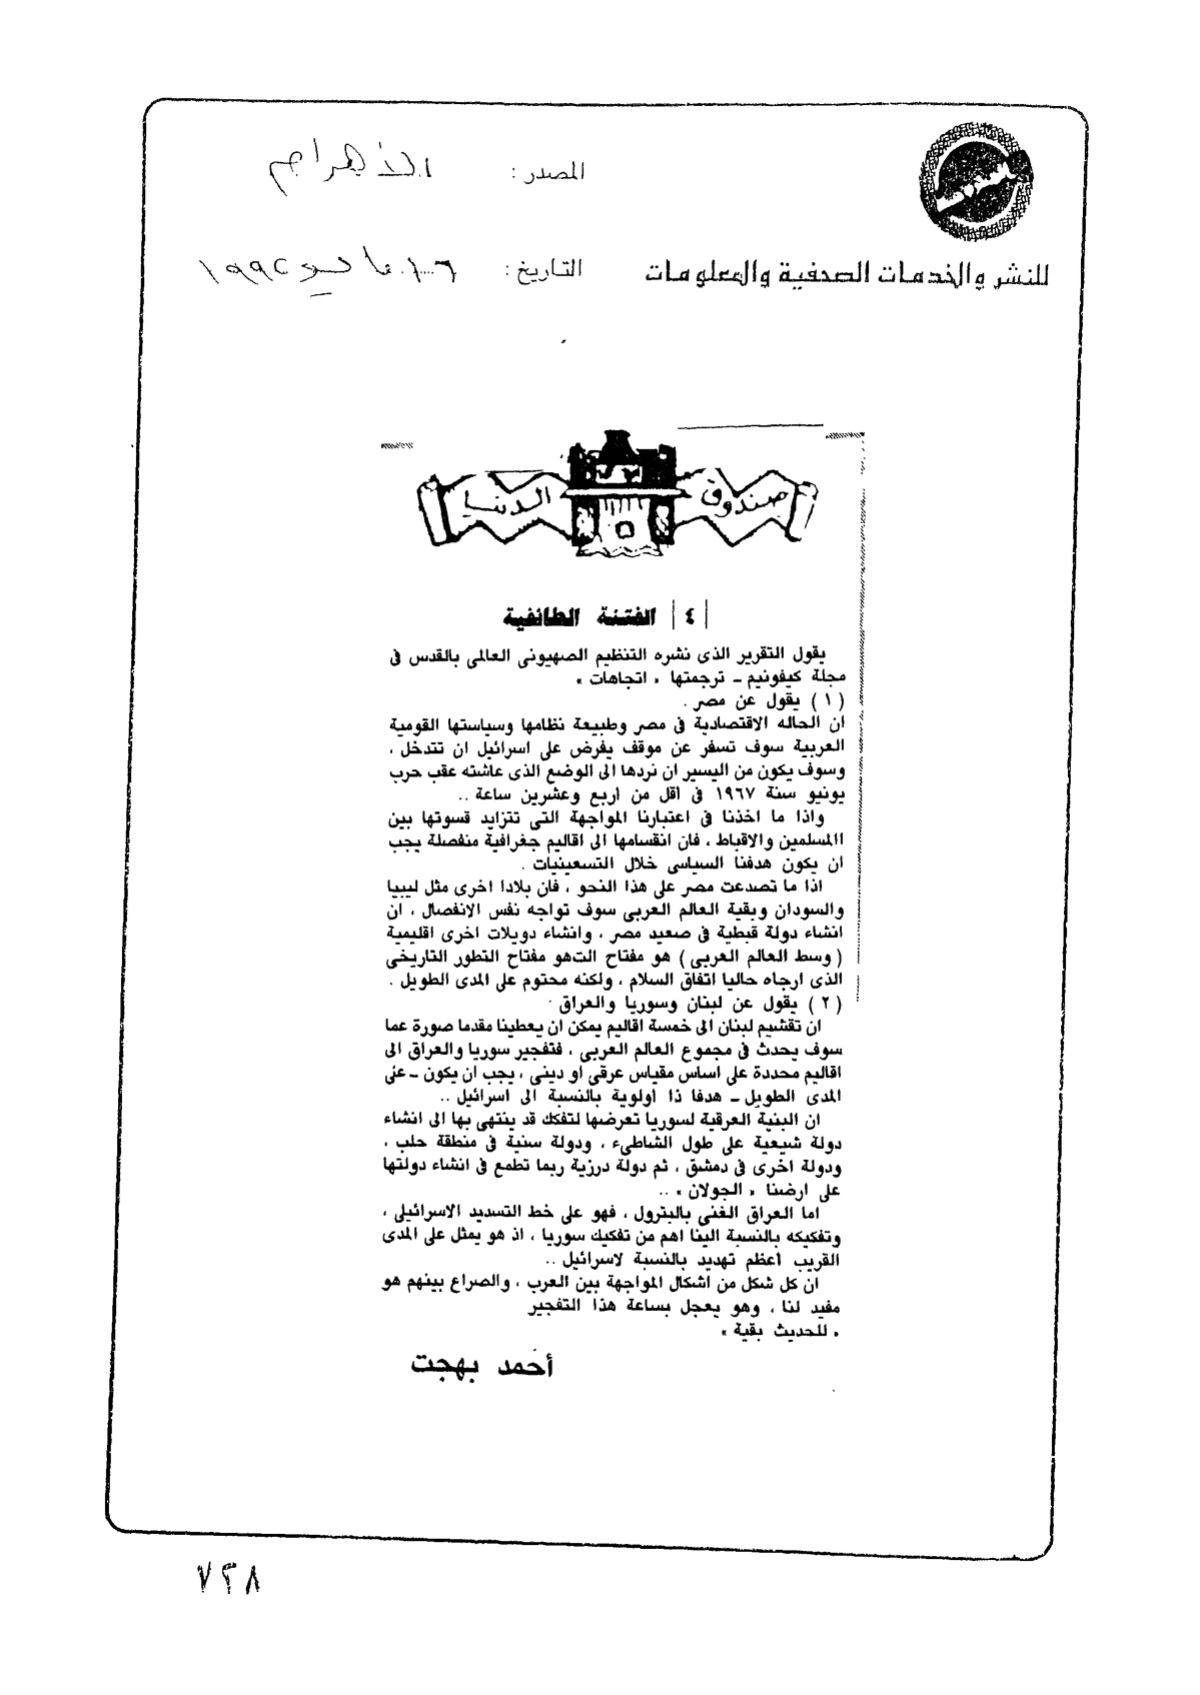 المصدر : الأهرام
للنشر والخدمات الصحفية والمعلومات
التاريخ : مايو ١٩٩٢
صندوق الدنيا
| ٤ | الفتنة الطائفية
يقول التقرير الذى نشره التنظيم الصهيونى العالمى بالقدس فى
مجلة كيفونيم ــ ترجمتها « اتجاهات »
( ١ ) يقول عن مصر .
ان الحاله الاقتصادية فى مصر وطبيعة نظامها وسياستها القومية
العربية سوف تسفر عن موقف يفرض على اسرائيل ان تتدخل ،
وسوف يكون من اليسير ان نردها الى الوضع الذى عاشته عقب حرب
يونيو سنة ١٩٦٧ فى اقل من أربع وعشرين ساعة ..
واذا ما اخذنا فى اعتبارنا المواجهة التى تتزايد قسوتها بين
االمسلمين والاقباط ، فان انقسامها الى اقاليم جغرافية منفصلة يجب
ان يكون هدفنا السياسى خلال التسعينيات .
اذا ما تصدعت مصر على هذا النحو ، فان بلادا اخرى مثل ليبيا
والسودان وبقية العالم العربى سوف تواجه نفس الانفصال ، ان
انشاء دولة قبطية فى صعيد مصر ، وانشاء دويلات اخرى اقليمية
( وسط العالم العربى ) هو مفتاح التهو مفتاح التطور التاريخى
الذى ارجاه حاليا اتفاق السلام ، ولكنه محتوم على المدى الطويل .
( ٢ ) يقول عن لبنان وسوريا والعراق .
ان تقشيم لبنان الى خمسة اقاليم يمكن ان يعطينا مقدما صورة عما
سوف يحدث فى مجموع العالم العربى ، فتفجير سوريا والعراق الى
اقاليم محددة على اساس مقياس عرقى او دينى ، يجب ان يكون ــ على
المدى الطويل ــ هدفا ذا أولوية بالنسبة الى اسرائيل ..
ان البنية العرقية لسوريا تعرضها لتفكك قد ينتهى بها الى انشاء
دولة شيعية على طول الشاطىء ، ودولة سنية فى منطقة حلب ،
ودولة اخرى فى دمشق ، ثم دولة درزية ربما تطمع فى انشاء دولتها
على ارضنا « الجولان » ..
اما العراق الغنى بالبترول ، فهو على خط التسديد الاسرائيلى ،
وتفكيكه بالنسبة الينا اهم من تفكيك سوريا ، اذ هو يمثل على المدى
القريب أعظم تهديد بالنسبة لاسرائيل ..
ان كل شكل من اشكال المواجهة بين العرب ، والصراع بينهم هو
مفيد لنا ، وهو يعجل بساعة هذا التفجير
« للحديث بقية »
أحمد بهجت
٧٢٨